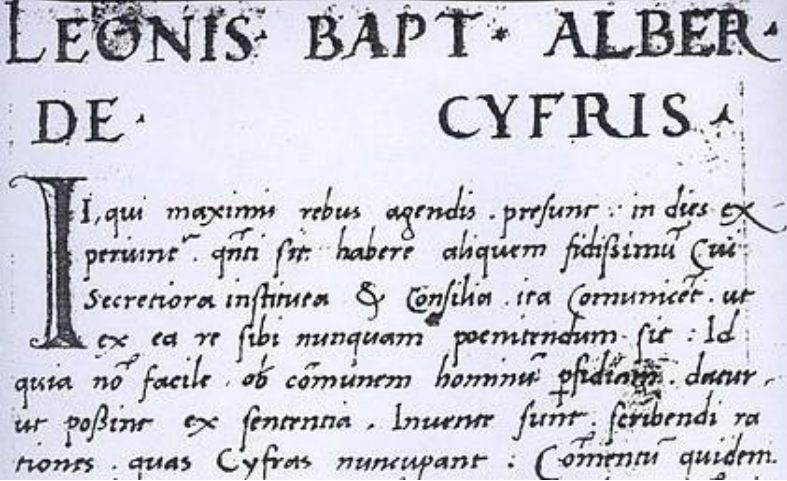 LEONIS· BAPT· ALBER·
DE· CYFRIS·
II, qui maximis rebus agendis . presunt : in dies ex
periunt᷑ . qn̄ti sit habere aliquem fidissimū Cui
Secretiora instituta & Consilia . ita Comunicēt . ut
ex ea re sibi nunquam poenitendum sit : Id
quia nō facile . ob cōmunem hominū ꝑfidiam . datur .
ut possint ex sententia . Inuente sunt . scribendi ra
tiones . quas Cyfras nuncupant : Cōmentū quidem .